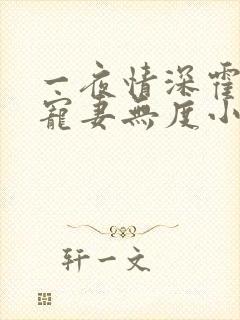 一夜情深霍
宠妻無度小
轩一文